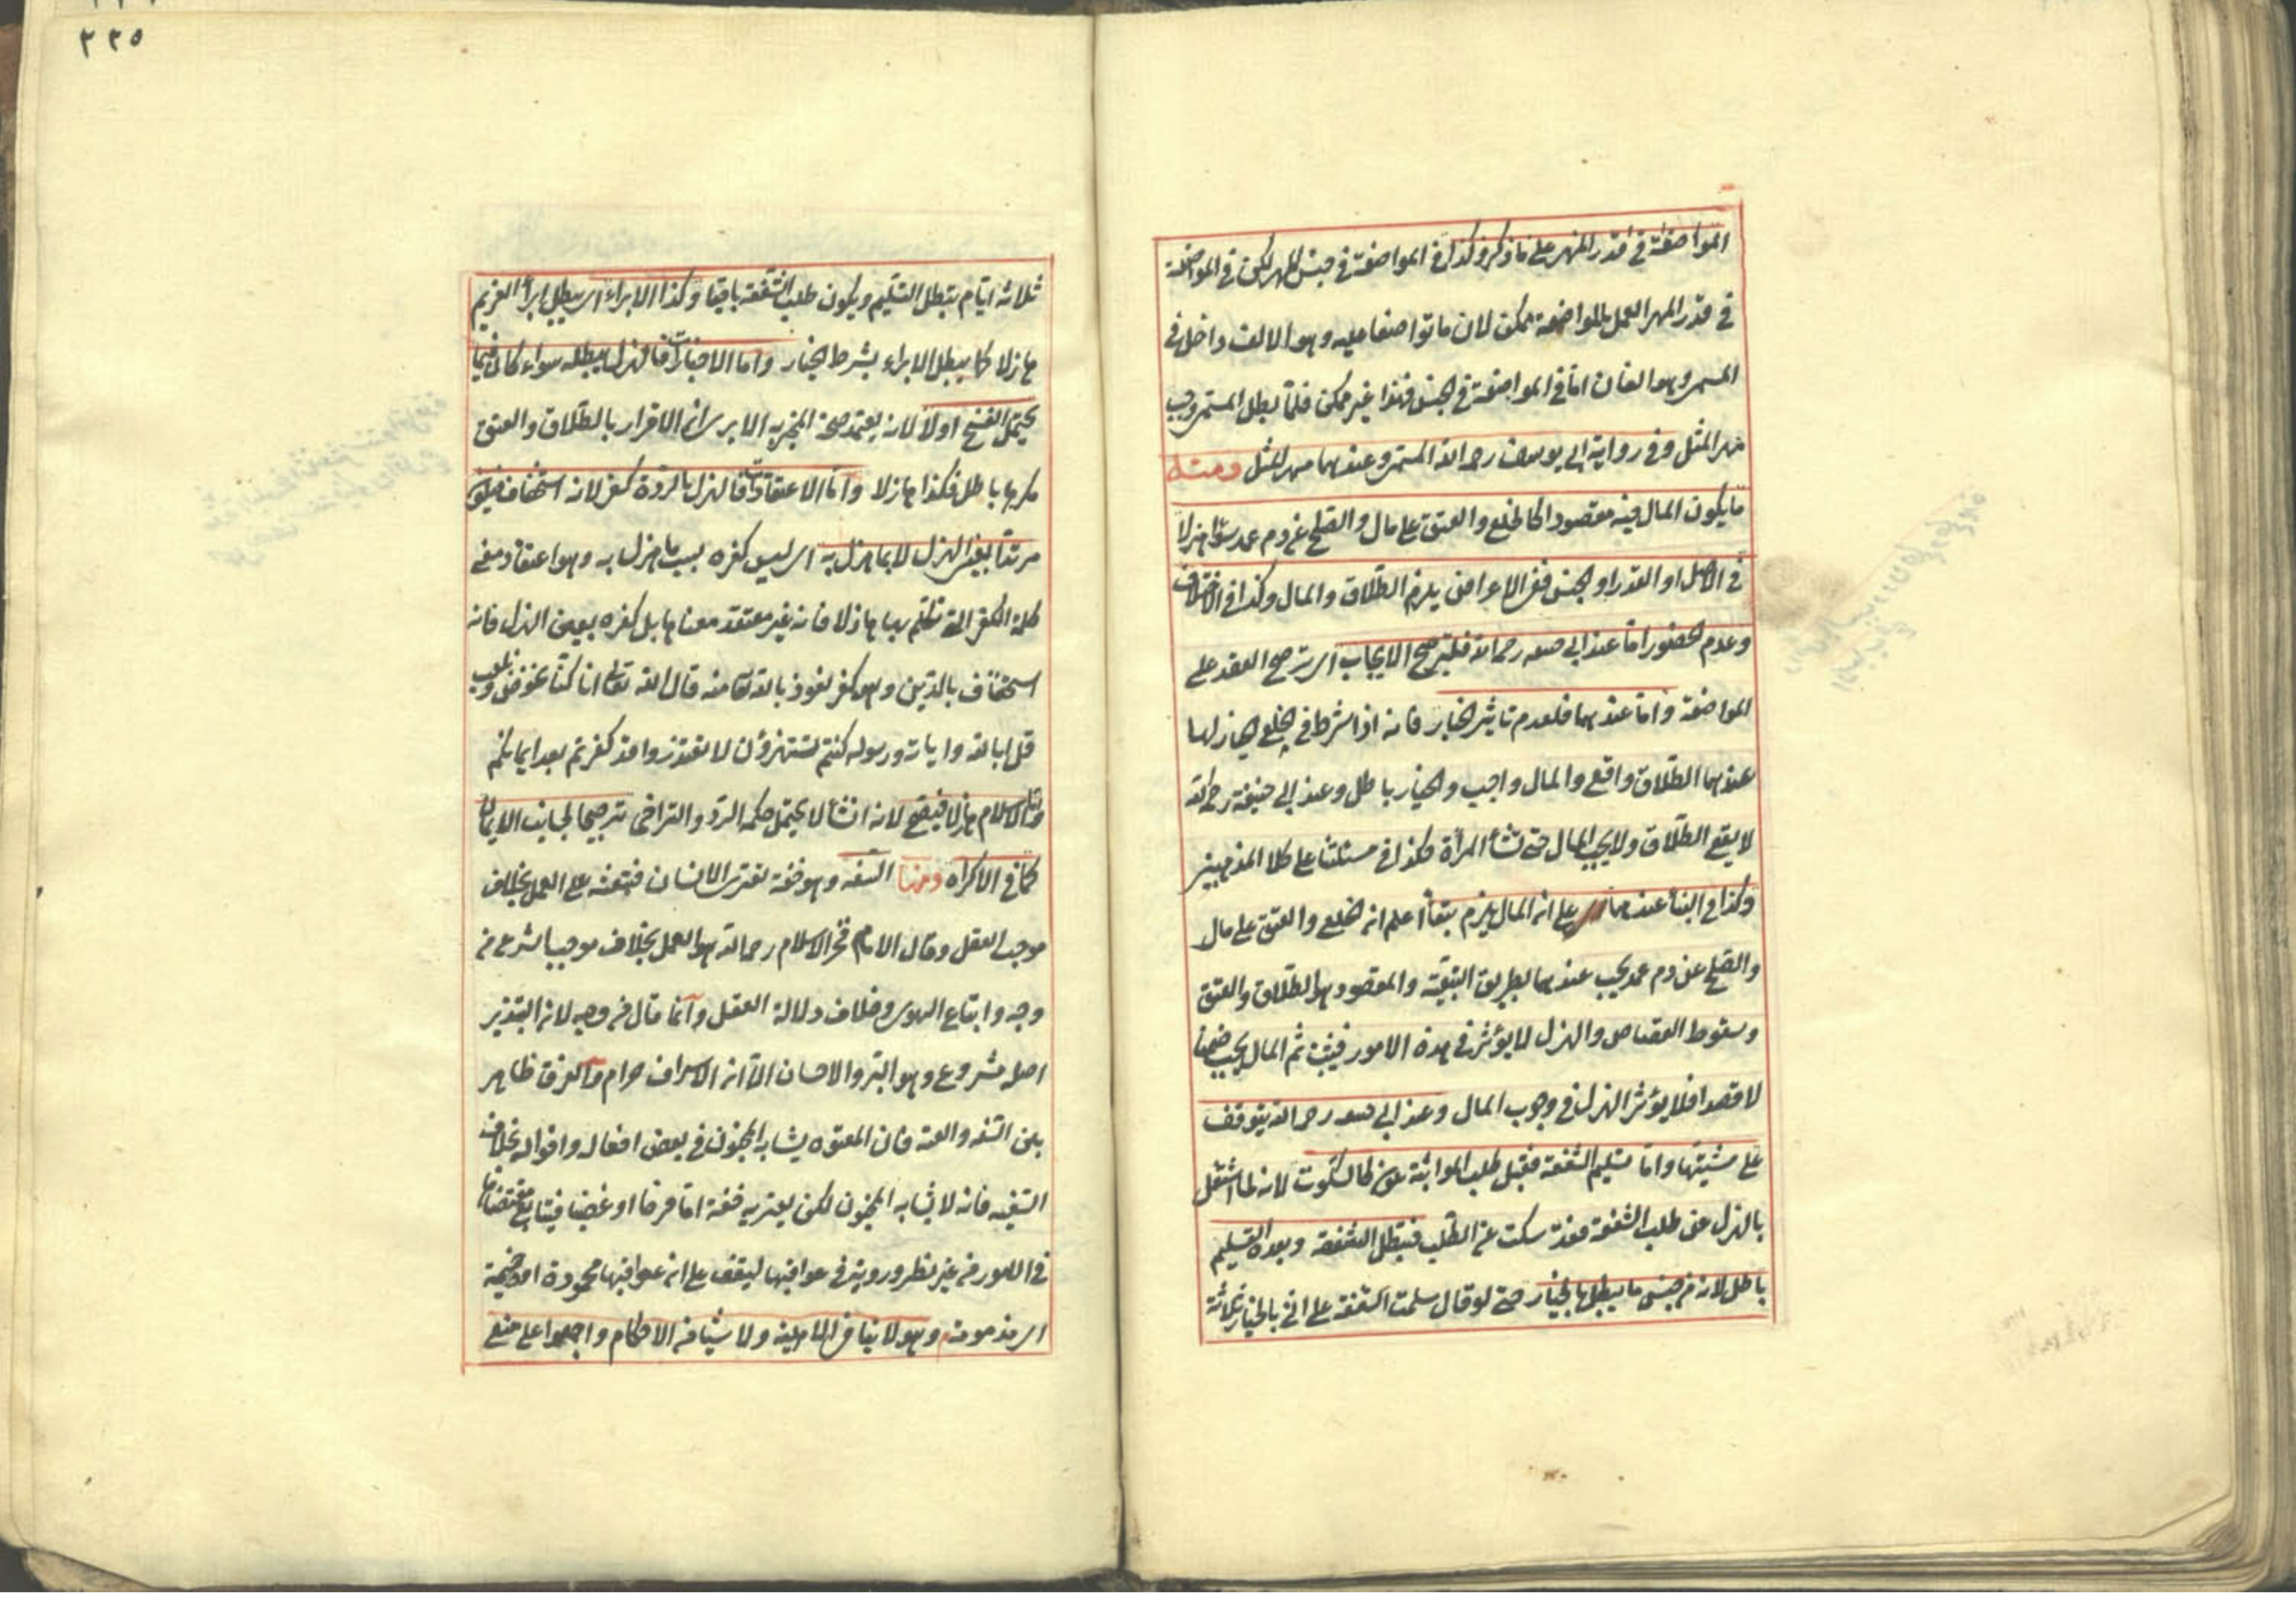 المواضعة في قدر المهر على ما ذكر وكذا في المواضعة في جنس المهر لكن في المواضعة
في قدر المهر العمل بالمواضعة ممكن لان ما تواضعا عليه وهو الالف داخل في
المسمى وهو الفان اما في المواضعة في الجنس فهذا غير ممكن فلما بطل المسمى وجب
مهر المثل وفي رواية ابي يوسف رحمه الله المسمى وعندهما مهر المثل ومنه
ما يكون المال فيه مقصودا كالخلع والعتق على مال والصلح عن دم عمد سواء هزلا
في الاصل او القدر او الجنس ففي الاعراض يلزم الطلاق والمال وكذا في الاختلاف
وعدم الحضور اما عند ابي حنيفه رحمه الله فلترجيح الايجاب اى ترجيح العقد على
المواضعة واما عندهما فلعدم تاثير الخيار فانه اذا شرط في الخلع الخيار لها
عندهما الطلاق واقع والمال واجب والخيار باطل وعند ابي حنيفة رحمه الله
لا يقع الطلاق ولا يجب المال حتى تشأ المرأة فكذا في مسئلتنا على كلا المذهبين
وكذا في البنأ عندهما على ان المال يلزم تبعا اعلم ان الخلع والعتق على مال
والصلح عن دم عمد يجب عندهما بطريق التبعية والمقصود هو الطلاق والعتق
وسقوط القصاص والهزل لا يؤثر في هذه الامور فيثبت ثم المال يجب ضمنا
لا قصدا فلا يؤثر الهزل في وجوب المال وعند ابي حنيفه رحمه الله يتوقف
على مشيتها واما تسليم الشفعة فقبل طلب المواثبة كالسكوت لانه لما اشتغل
بالهزل عن طلب الشفعة فقد سكت عن الطلب فتبطل الشفعة وبعده التسليم
باطل لانه من جنس ما يبطل بالخيار حتى لو قال سلمت الشفعة على انى بالخيار ثلاثة
٣٣٥
ثلاثة ايام يبطل التسليم ويكون طلب الشفعة باقيا وكذا الابراء اى يبطل ابرأ الغريم
هازلا كما يبطل الابراء بشرط الخيار واما الاخبارات فالهزل يبطله سواء كان فيما
يحتمل الفسخ اولا لانه يعتمد صحة المخبر به الا يرى ان الاقرار بالطلاق والعتق
مكرها باطل فكذا هازلا واما الاعتقادات فالهزل بالردة كفر لانه استخفاف فيكون
مرتدا بعين الهزل لا بما هزل به اى ليس كفره بسبب ما هزل به وهو اعتقاد معنى
كلمة الكفر التى تكلم بها هازلا فانه غير معتقد معناها بل كفره بعين الهزل فانه
استخفاف بالدين وهو كفر نعوذ بالله تعالى منه قال الله تعالى انما كنا نخوض ونلعب
قل ابالله وايات ورسوله كنتم تستهزؤن لا تعتذروا قد كفرتم بعد ايمانكم
واما الاسلام هازلا فيصح لانه انشأ لا يحتمل حكمه الرد والتراخى ترجيحا لجانب الايمان
كما في الاكراه ومنها السفه وهو خفة تعترى الانسان فتبعثه على العمل بخلاف
موجب العقل وقال الامام فخر الاسلام رحمه الله هو العمل بخلاف موجب الشرع من
وجه واتباع الهوى وخلاف دلالة العقل وانما قال من وجه لان التبذير
اصله مشروع وهو البر والاحسان الا ان الاسراف حرام والفرق ظاهر
بين السفه والعته فان المعتوه يشابه المجنون في بعض افعاله واقواله بخلاف
السفيه فانه لا يشابه المجنون لكن يعتريه خفة اما فرحا او غضبا فيتابع مقتضاها
في الامور من غير نظر وروية في عواقبها ليقف على ان عواقبها محمودة او وخيمة
اى مذمومة وهو لا ينافى الاهلية ولا شيأ من الاحكام واجمعوا على منع